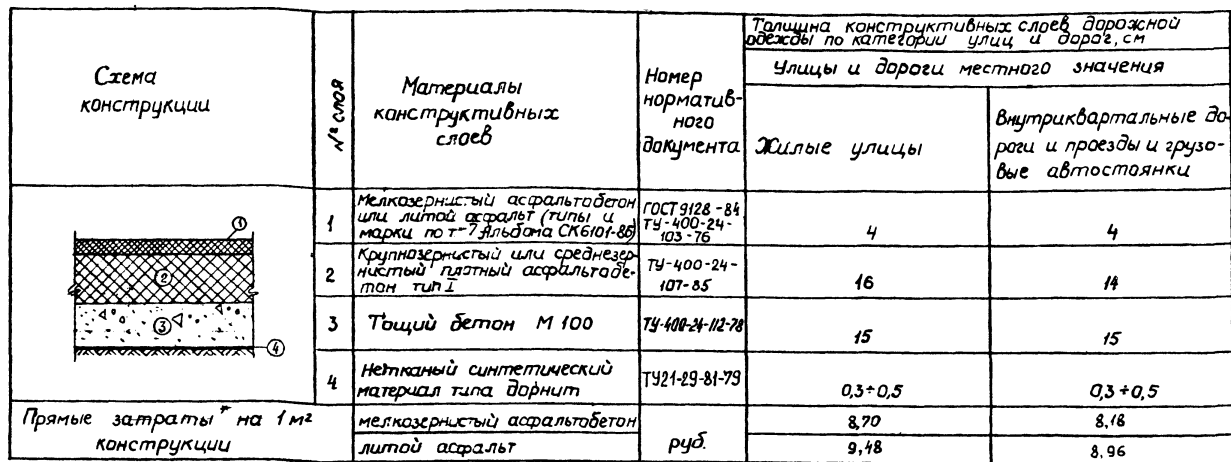 Схема
конструкции
№ слоя
Материалы
конструктивных
слоев
Номер
норматив-
ного
документа
Толщина конструктивных слоев дорожной
одежды по категории улиц и дорог, см
Улицы и дороги местного значения
Жилые улицы
Внутриквартальные до-
роги и проезды и грузо-
вые автостоянки
1
2
3
4
1
Мелкозернистый асфальтобетон
или литой асфальт (типы и
марки по т-7 Альбома СК6101-86)
ГОСТ 9128-84
ТУ-400-24-
103-76
4
4
2
Крупнозернистый или среднезер-
нистый плотный асфальтобе-
тон тип I
ТУ-400-24-
107-85
16
14
3
Тощий бетон М 100
ТУ-400-24-112-78
15
15
4
Нетканый синтетический
материал типа дорнит
ТУ21-29-81-79
0,3÷0,5
0,3÷0,5
Прямые затраты* на 1 м²
конструкции
мелкозернистый асфальтобетон
литой асфальт
руб.
8,70
8,18
9,48
8,96